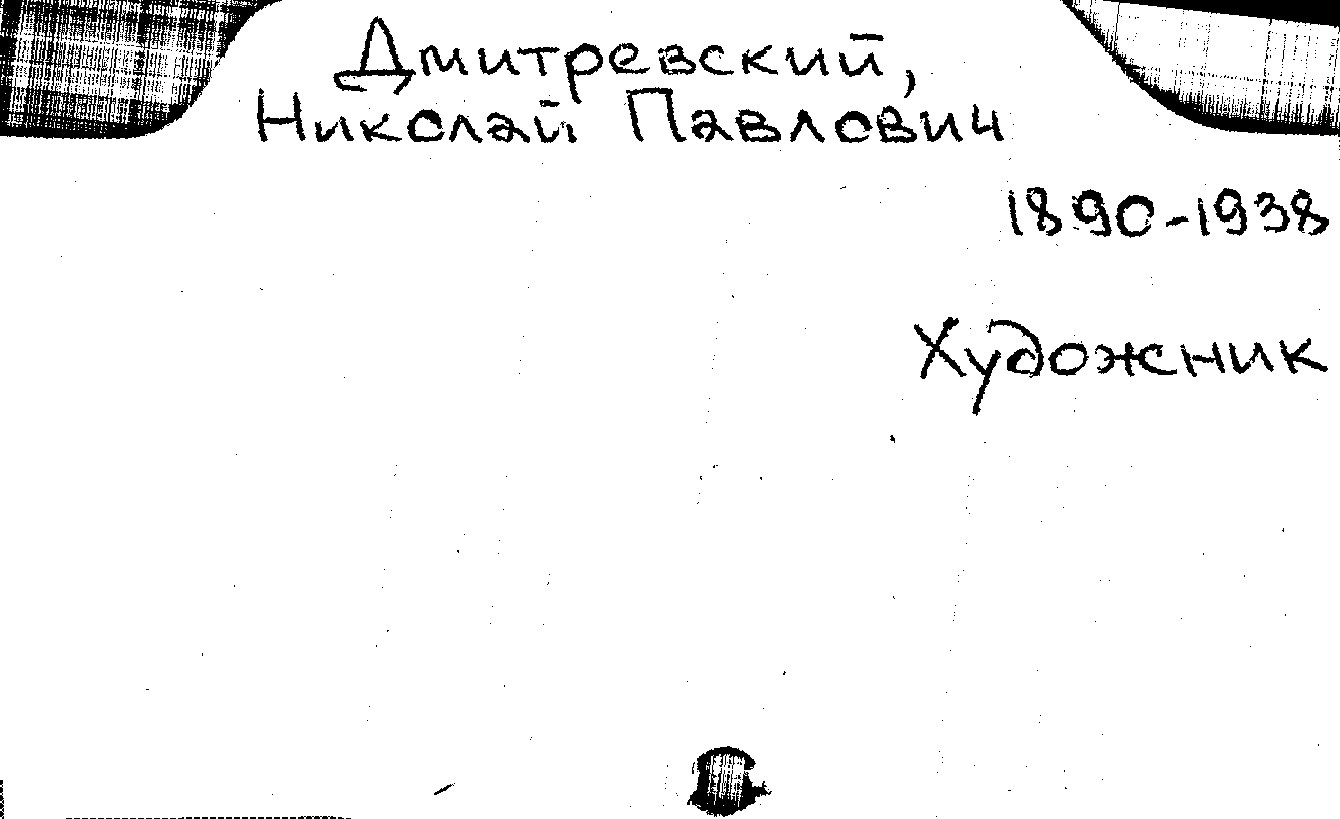 Дмитревский,
Николай Павлович
1890-1938
Художник